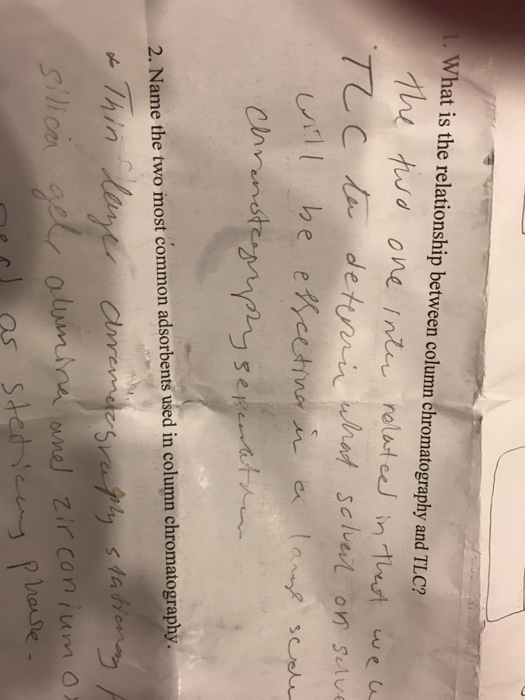 1. What is the relationship between column chromatography and TLC?
the two one inter related in that we u
TLC to determin what solvent or solve
will be effecting in a large scale
chromotography seperation
2. Name the two most common adsorbents used in column chromatography.
Thin layer chromatography stationary p
silica gel, alumina and zirconium o
as stationary phase.